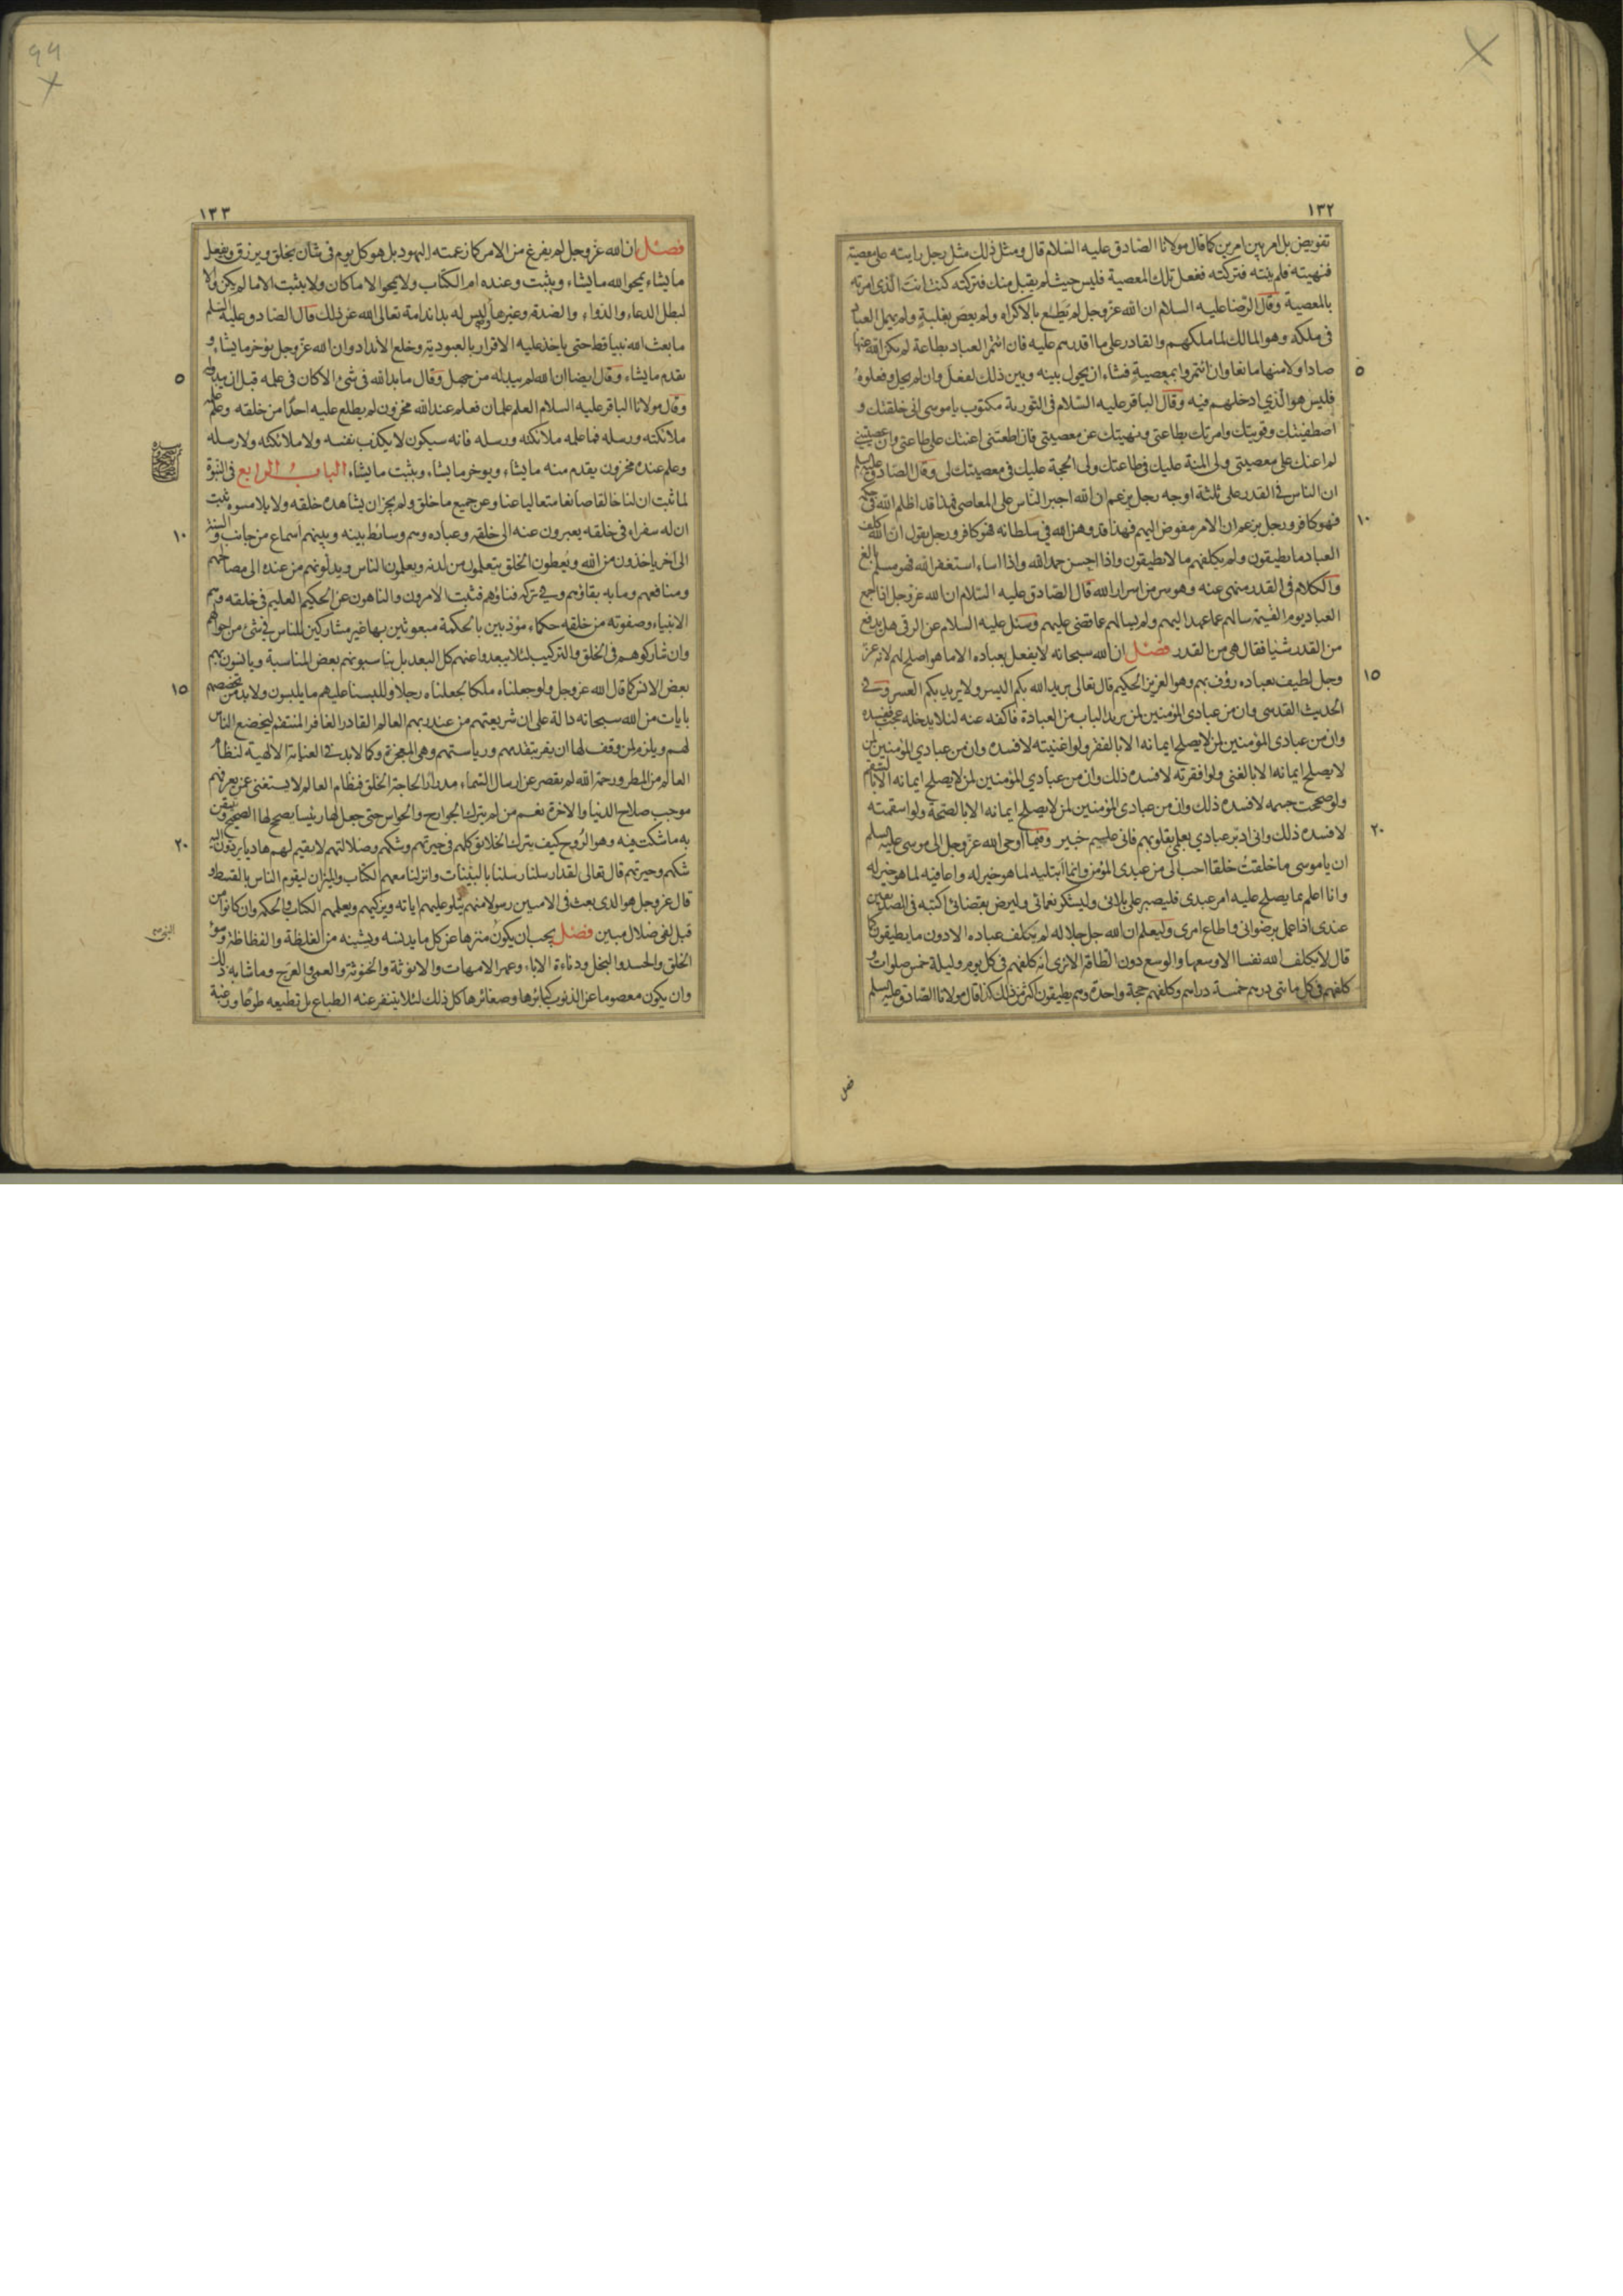 ١٣٢
تفويض بل امر بين امرين كما قال مولانا الصادق عليه السلام قال ومثل ذلك مثل رجل رايته على معصية
فنهيته فلم ينته فتركته ففعل تلك المعصية فليس حيث لم يقبل منك فتركته كنت انت الذي امرته
بالمعصية وقال الرضا عليه السلام ان الله عز وجل لم يطع بالاكراه ولم يعص بغلبة ولم يهمل العباد
في ملكه وهو المالك لما ملكهم والقادر على ما اقدرهم عليه فان ائتمر العباد بطاعة لم يكن الله عنها
صادا ولا منها مانعا وان ائتمروا بمعصية فشاء ان يحول بينه وبين ذلك لفعل وان لم يحل وفعلوه
فليس هو الذي ادخلهم فيه وقال الباقر عليه السلام في التورية مكتوب يا موسى اني خلقتك و
اصطفيتك وقويتك وامرتك بطاعتي ونهيتك عن معصيتي فان اطعتني اعنتك على طاعتي وان عصيتني
لم اعنك على معصيتي ولي المنة عليك في طاعتك ولي الحجة عليك في معصيتك لي وقال الصادق عليه السلم
ان الناس في القدر على ثلثة اوجه رجل يزعم ان الله اجبر الناس على المعاصي فهذا قد اظلم الله في حكمه
فهو كافر ورجل يزعم ان الامر مفوض اليهم فهذا قد وهن الله في سلطانه فهو كافر ورجل يقول ان الله كلف
العباد ما يطيقون ولم يكلفهم ما لا يطيقون واذا احسن حمد الله واذا اساء استغفر الله فهو مسلم بالغ
والكلام في القدر منهى عنه وهو سر من اسرار الله قال الصادق عليه السلام ان الله عز وجل اذا جمع
العباد يوم القيمة سالهم عما عهد اليهم ولم يسالهم عما قضى عليهم وسئل عليه السلام عن الرقى هل يدفع
من القدر شيئا فقال هي من القدر فصل ان الله سبحانه لا يفعل بعباده الا ما هو اصلح لهم لانه عز
وجل لطيف بعباده رؤف بهم وهو العزيز الحكيم قال تعالى يريد الله بكم اليسر ولا يريد بكم العسر وفي
الحديث القدسي وان من عبادي المؤمنين لمن يريد الباب من العبادة فاكفه عنه لئلا يدخله عجب فيفسده
وان من عبادي المؤمنين لمن لا يصلح ايمانه الا بالفقر ولو اغنيته لافسده وان من عبادي المؤمنين لمن
لا يصلح ايمانه الا بالغنى ولو افقرته لافسده ذلك وان من عبادي المؤمنين لمن لا يصلح ايمانه الا بالسقم
ولو صححت جسمه لافسده ذلك وان من عبادي المؤمنين لمن لا يصلح ايمانه الا بالصحة ولو اسقمته
لافسده ذلك واني ادبر عبادي بعلمي بقلوبهم فاني عليم خبير وفيما اوحى الله عز وجل الى موسى عليه السلم
ان يا موسى ما خلقت خلقا احب الي من عبدي المؤمن وانما ابتليه لما هو خير له واعافيه لما هو خير له
وانا اعلم بما يصلح عليه امر عبدي فليصبر على بلائي وليشكر نعمائي وليرض بقضائي اكتبه في الصديقين
عندي اذا عمل برضواني واطاع امري وليعلم ان الله جل جلاله لم يكلف عباده الا دون ما يطيقون كما
قال لا يكلف الله نفسا الا وسعها والوسع دون الطاقة الا ترى انه كلفهم في كل يوم وليلة خمس صلوات و
كلفهم في كل مأتي درهم خمسة دراهم وكلفهم حجة واحدة وهم يطيقون اكثر من ذلك كذا قال مولانا الصادق عليه السلم
فصل
٥
١٠
١٥
٢٠
١٣٣
فصل ان الله عز وجل لم يفرغ من الامر كما زعمته اليهود بل هو كل يوم في شان يخلق ويرزق ويفعل
ما يشاء يمحو الله ما يشاء ويثبت وعنده ام الكتاب ولا يمحو الا ما كان ولا يثبت الا ما لم يكن ولولا
لبطل الدعاء والدواء والصدقة وغيرها وليس له بدا ندامة تعالى الله عن ذلك قال الصادق عليه السلم
ما بعث الله نبيا قط حتى ياخذ عليه الاقرار بالعبودية وخلع الانداد وان الله عز وجل يؤخر ما يشاء و
يقدم ما يشاء وقال ايضا ان الله لم يبد له من جهل وقال ما بدا لله في شئ الا كان في علمه قبل ان يبدو له
وقال مولانا الباقر عليه السلام العلم علمان فعلم عند الله مخزون لم يطلع عليه احدا من خلقه وعلم علمه
ملائكته ورسله فما علمه ملائكته ورسله فانه سيكون لا يكذب نفسه ولا ملائكته ولا رسله
وعلم عنده مخزون يقدم منه ما يشاء ويوخر ما يشاء ويثبت ما يشاء الباب الرابع في النبوة
لما ثبت ان لنا خالقا صانعا متعاليا عنا وعن جميع ما خلق ولم يجز ان يشاهده خلقه ولا يلامسوه ثبت
ان له سفراء في خلقه يعبرون عنه الى خلقه وعباده وهم وسائط بينه وبينهم اسماع من جانب والسنة
الى اخر ياخذون من الله ويعطون الخلق يتعلمون من لدنه ويعلمون الناس ويدلونهم من عنده الى مصالحهم
ومنافعهم وما به بقاؤهم وفي تركه فناؤهم فثبت الامرون والناهون عن الحكيم العليم في خلقه وهم
الانبياء وصفوته من خلقه حكماء مؤدبين بالحكمة مبعوثين بها غير مشاركين للناس في شئ من احوالهم
وان شاركوهم في الخلق والتركيب لئلا يبعدوا عنهم كل البعد بل يناسبونهم بعض المناسبة ويانسون بهم
بعض الانس كما قال الله عز وجل ولو جعلناه ملكا لجعلناه رجلا وللبسنا عليهم ما يلبسون ولا بد من تخصيصهم
بايات من الله سبحانه دالة على ان شريعتهم من عند ربهم العالم القادر الغافر المنتقم ليخضع الناس
لهم ويلزم لمن وقف لها ان يقر بتقدمهم ورياستهم وهي المعجزة وكما لا بد في العناية الالهية لنظام
العالم من المطر ورحمة الله لم يقصر عن ارسال السماء مدرارا لحاجة الخلق فنظام العالم لا يستغني عن من يعرفهم
موجب صلاح الدنيا والاخرة نعم من لم يترك الجوارح والحواس حتى جعل لها رئيسا يصحح لها الصحيح ويتيقن
به ما شكت فيه وهو الروح كيف يترك الخلائق كلهم في حيرتهم وشكهم وضلالتهم لا يقيم لهم هاديا يردون اليه
شكهم وحيرتهم قال تعالى لقد ارسلنا رسلنا بالبينات وانزلنا معهم الكتاب والميزان ليقوم الناس بالقسط و
قال عز وجل هو الذي بعث في الاميين رسولا منهم يتلو عليهم اياته ويزكيهم ويعلمهم الكتاب والحكمة وان كانوا من
قبل لفي ضلال مبين فصل يجب ان يكون منزها عن كل ما يدنسه ويشينه من الغلظة والفظاظة وسوء
الخلق والحسد والبخل ودناءة الاباء وعهر الامهات والانوثة والخنوثة والعمى والعرج وما شابه ذلك
وان يكون معصوما عن الذنوب كبائرها وصغائرها كل ذلك لئلا يتنفر عنه الطباع بل تطيعه طوعا ورغبة
٥
١٠
١٥
٢٠
99